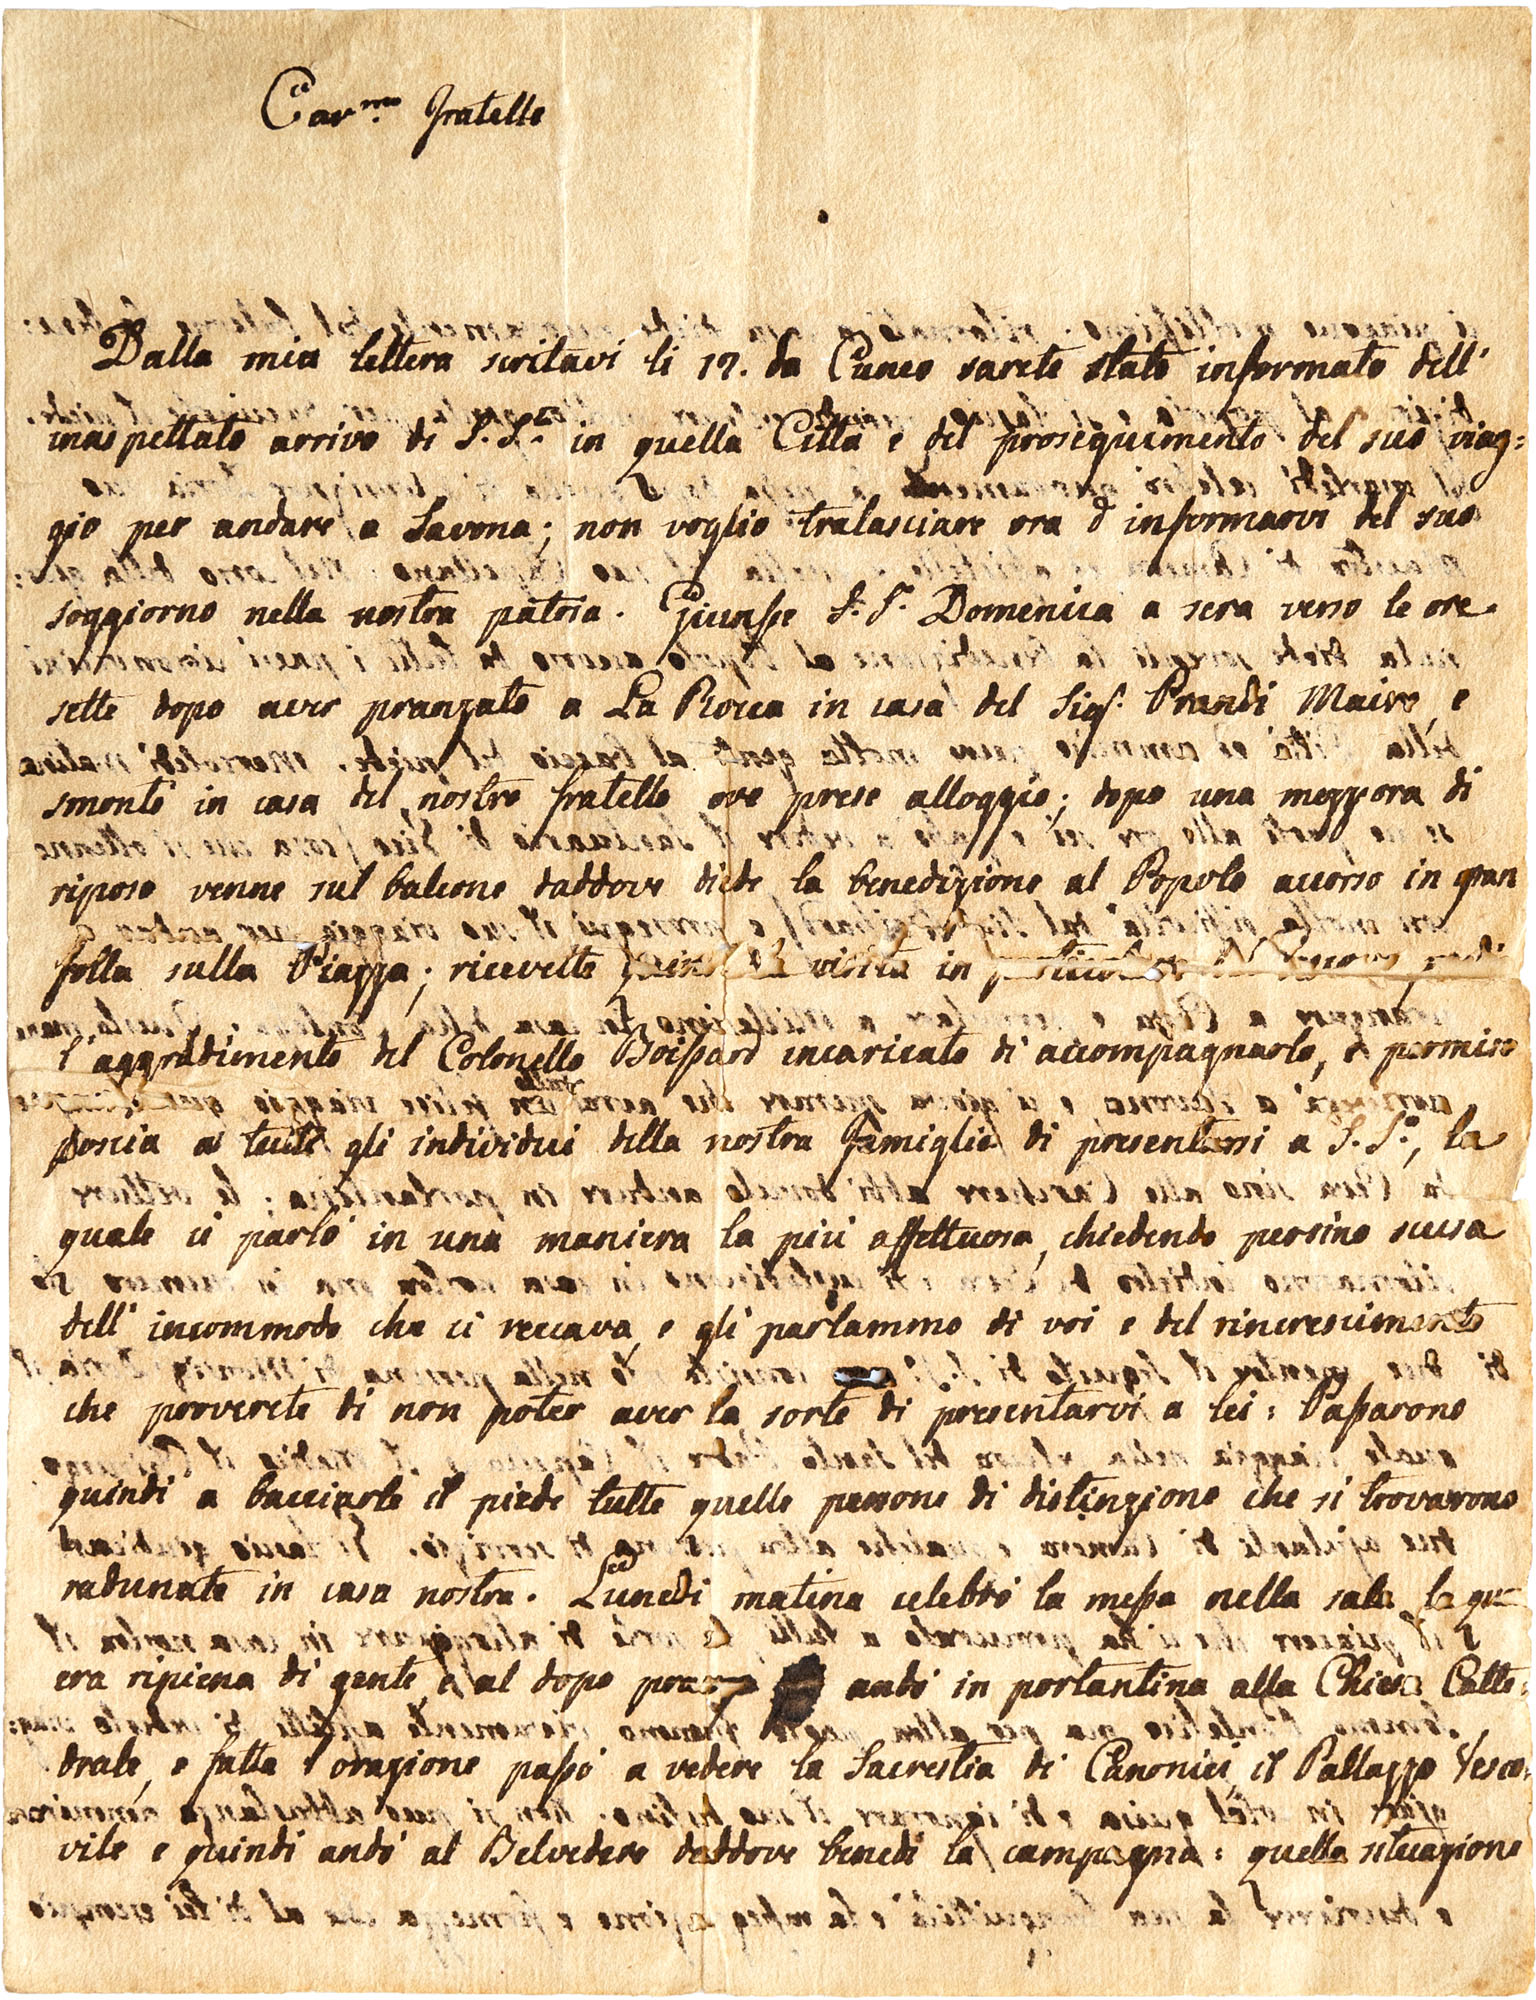 Car.mo fratello
Dalla mia lettera scritavi li 17. da Cuneo sarete stato informato dell'
inaspettato arrivo di S. S.tà in quella Città e del proseguimento del suo viag=
gio per andare a Savona; non voglio tralasciare ora d'informarvi del suo
soggiorno nella nostra patria. Giunse S. S.tà Domenica a sera verso le ore
sette dopo aver pranzato a La Rocca in casa del Sigr. Prandi Maire, e
smontò in casa del nostro fratello ove prese alloggio; dopo una mezz'ora di
riposo venne sul balcone daddove diede la benedizione al Popolo accorso in gran
folla sulla Piazza; ricevette quindi la visita in particolare del Vescovo
l'aggradimento del Colonello Boissard incaricato di accompagnarlo, e permise
poscia a tutti gli individui della nostra famiglia di presentarsi a S. S.tà, la
quale ci parlò in una maniera la più affettuosa, chiedendo persino scusa
dell'incommodo che ci reccava, e gli parlammo di voi e del rincrescimento
che proverete di non poter aver la sorte di presentarvi a lei: Passarono
quindi a bacciarle il piede tutte quelle persone di distinzione che si trovarono
radunate in casa nostra. Lunedì matina celebrò la messa nella sala la qu
era ripiena di gente, e al dopo andò in portantina alla Chiesa Catte=
drale, e fatta l'orazione passò a vedere la Sacrestia di Canonici, il Pallazzo Vesco=
vile e quindi andò al Belvedere daddove benedì la campagna: quella situazione